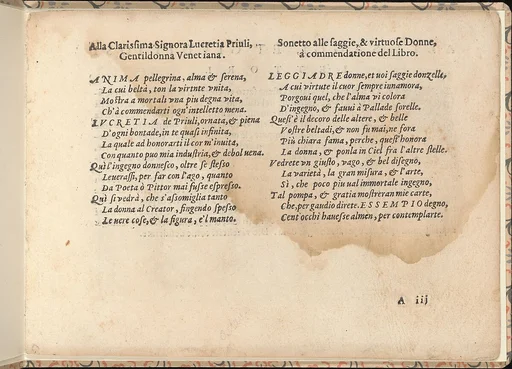 Alla Clarissima Signora Lucretia Priuli,
Gentildonna Venetiana.
ANIMA pellegrina, alma & serena,
La cui beltà, con la virtute vnita,
Mostra a mortali vna piu degna vita,
Ch'à commendarti ogn'intelletto mena.
LVCRETIA de Priuli, ornata, & piena
D'ogni bontade, in te quasi infinita,
La quale ad honorarti il cor m'inuita,
Con quanto puo mia industria, & debol uena.
Quì l'ingegno donnesco, oltre se stesso
Leuerassi, per far con l'ago, quanto
Da Poeta ò Pittor mai fusse espresso.
Quì si vedrà, che s'assomiglia tanto
La donna al Creator, fingendo spesso
Le uere cose, & la figura, e'l manto.
Sonetto alle saggie, & virtuose Donne,
à commendatione del Libro.
LEGGIADRE donne, et uoi saggie donzelle,
A cui virtute il cuor sempre innamora,
Porgoui quel, che l'alma vi colora
D'ingegno, & fauui à Pallade sorelle.
Quest'è il decoro delle altere, & belle
Vostre beltadi, & non fu mai, ne fora
Più chiara fama, perche, quest'honora
La donna, & ponla in Ciel fra l'altre stelle.
Vedrete vn giusto, vago, & bel disegno,
La varietà, la gran misura, & l'arte,
Sì, che poco piu ual immortale ingegno,
Tal pompa, & gratia mostreran mie carte,
Che, per gaudio direte. ESSEMPIO degno,
Cent'occhi hauesse almen, per contemplarte.
A iij